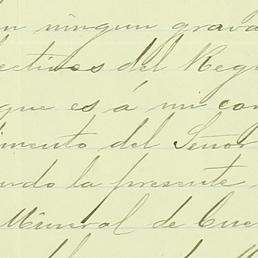 n ningun grava
ectivos del Reg
que es á mi con
imiento del Señor
ndo la presente
Mineral de Cue